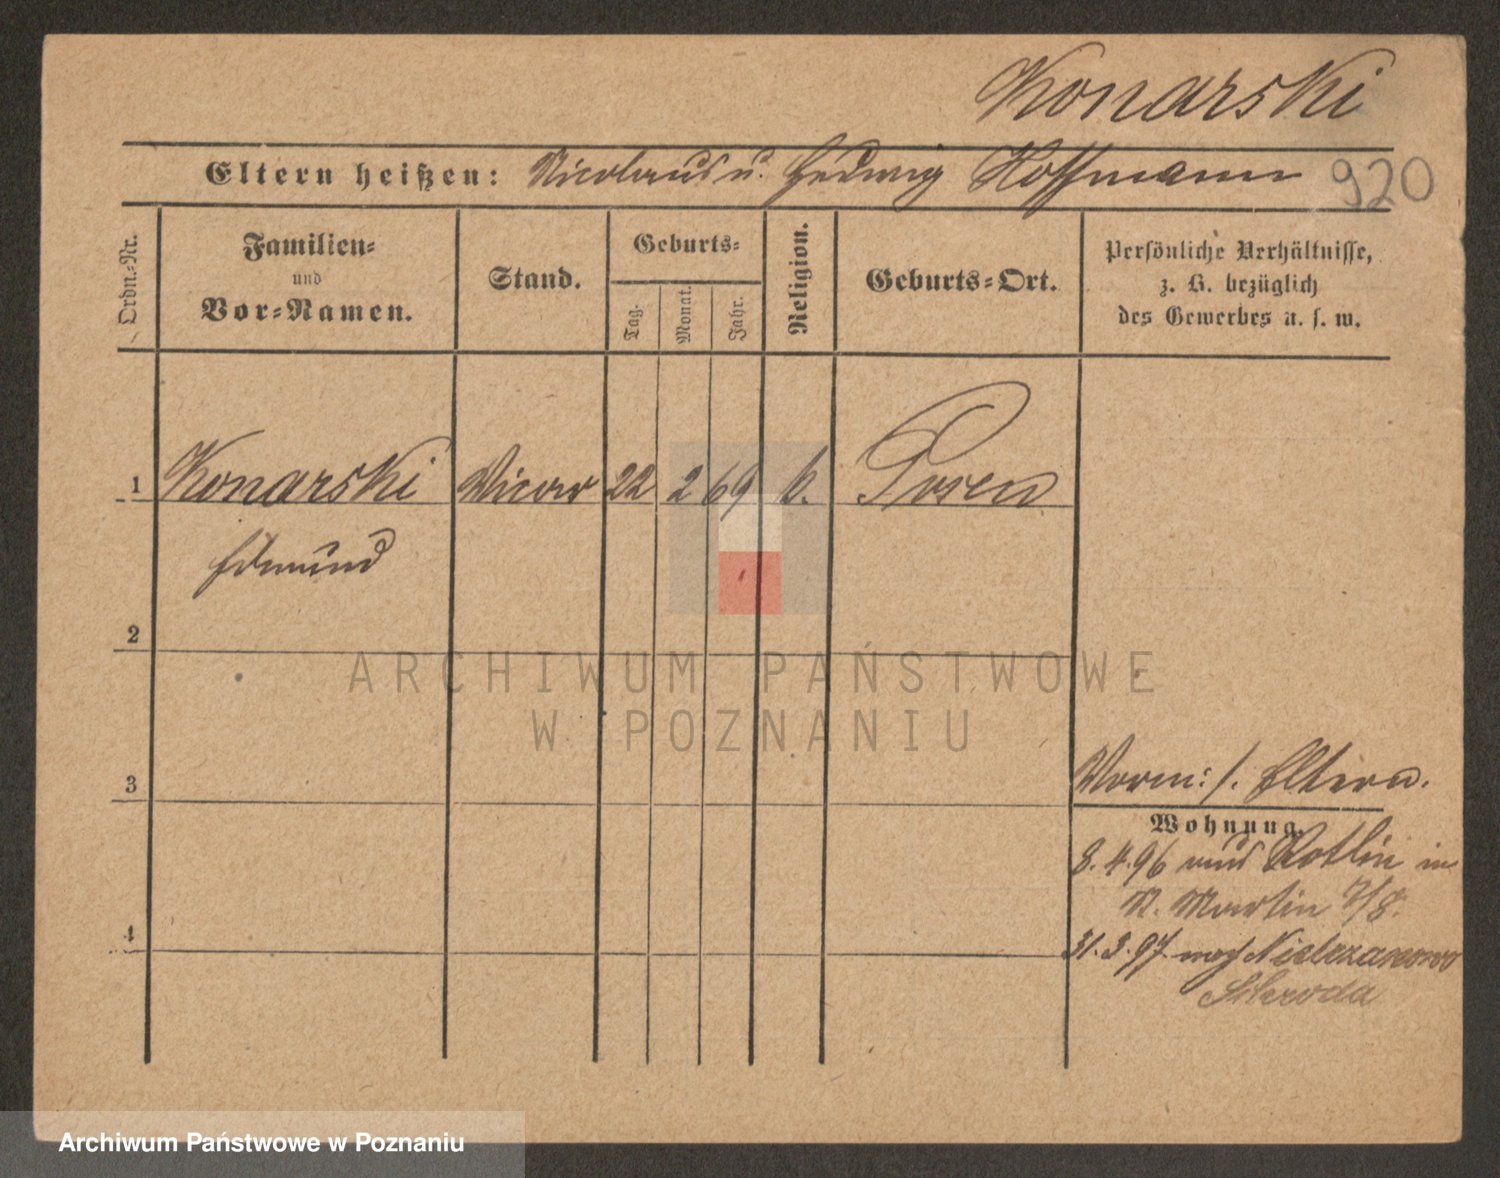 Konarski
Eltern heißen: Nicolaus u. Hedwig Hoffmann 920
Ordn.-Nr.
Familien-
und
Vor-Namen.
Stand.
Geburts-
Tag.
Monat.
Jahr.
Religion.
Geburts-Ort.
Persönliche Verhältnisse,
z. B. bezüglich
des Gewerbes u. s. w.
1 Konarski Vicar 22 2 69 k. Posen
Edmund
2
ARCHIWUM PAŃSTWOWE
W POZNANIU
3
Vorm: /. Eltern.
Wohnung.
8.4.96 aus Kotlin in
St. Martin 7/8.
4
31.3.97. nach
Schroda
Archiwum Państwowe w Poznaniu